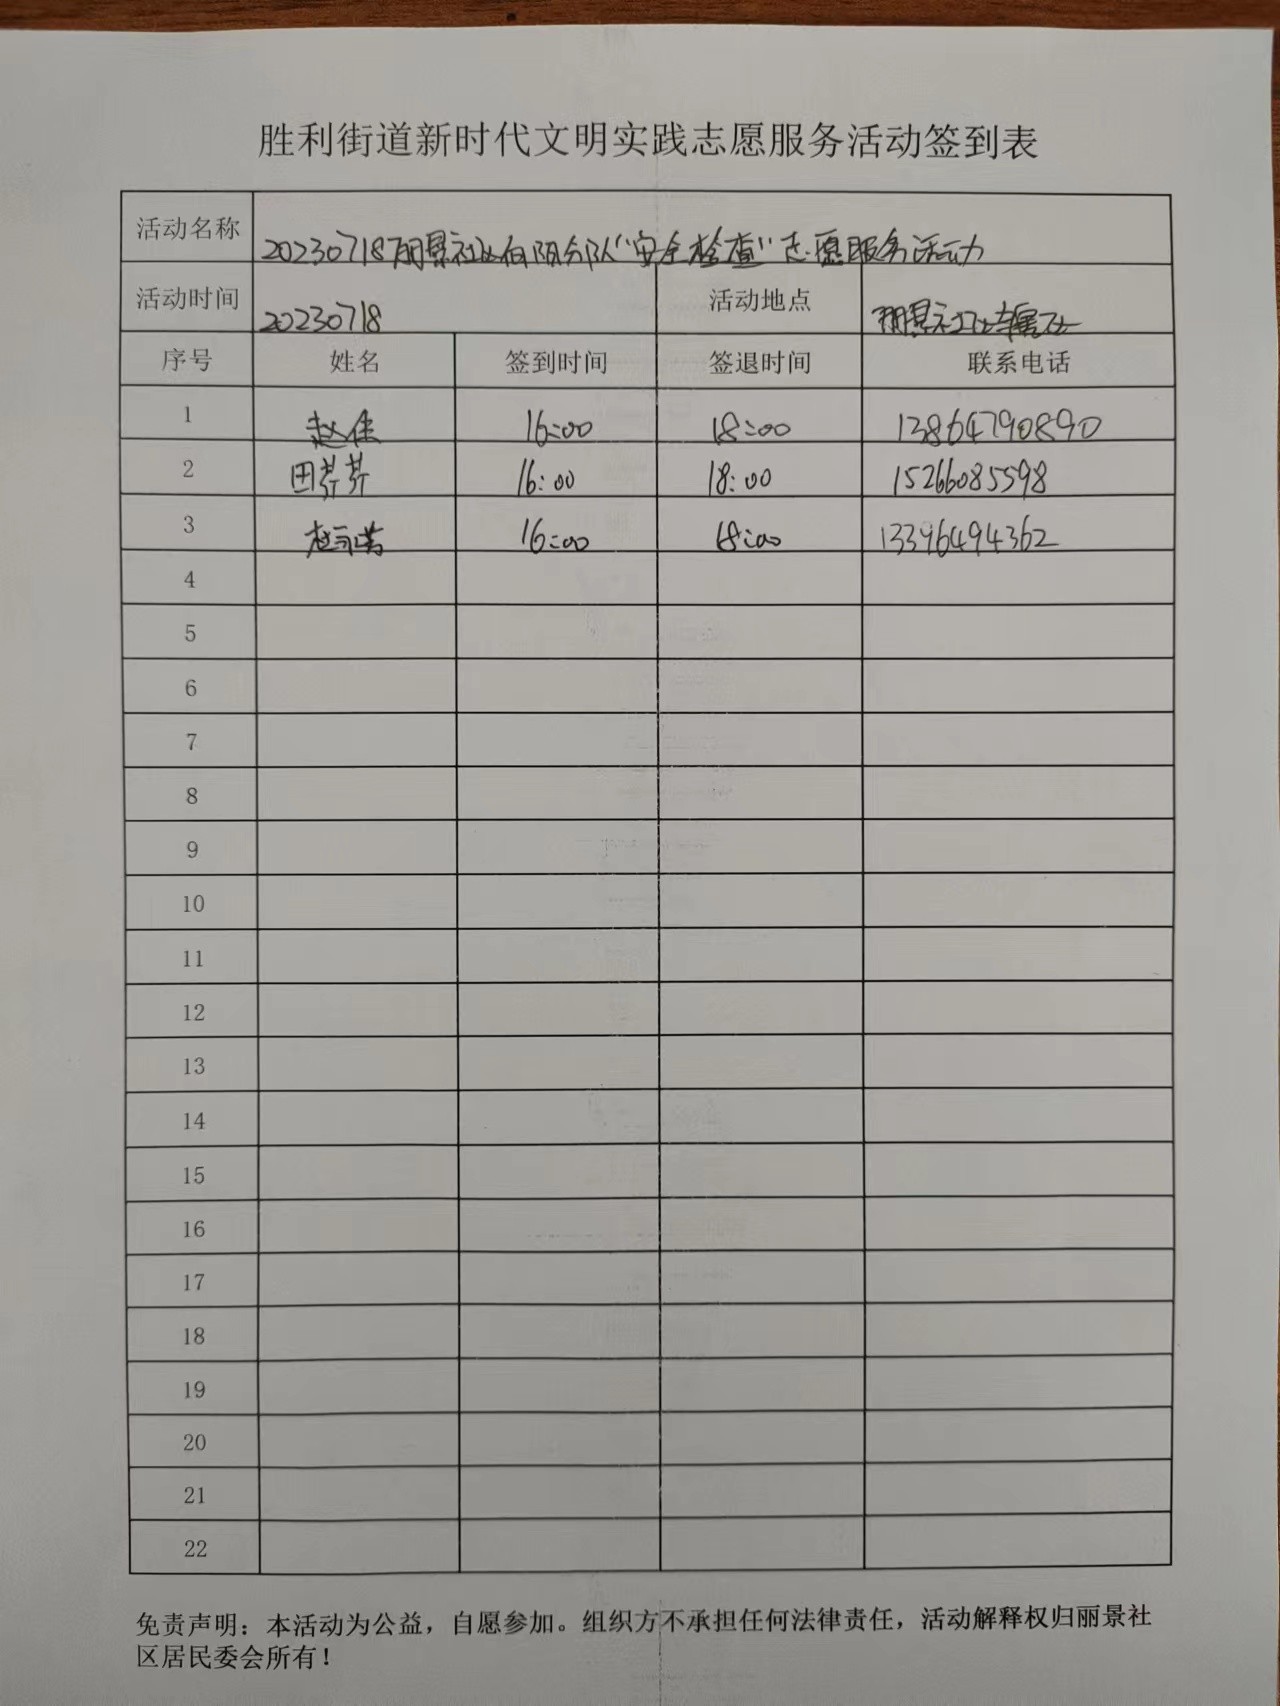 胜利街道新时代文明实践志愿服务活动签到表
活动名称 20230718丽景社区向阳分队“安全检查”志愿服务活动
活动时间 20230718 活动地点 丽景社区辖区
序号 姓名 签到时间 签退时间 联系电话
1 赵佳 16:00 18:00 13864790890
2 田芹芹 16:00 18:00 15266085598
3 16:00 18:00 13396494362
4
5
6
7
8
9
10
11
12
13
14
15
16
17
18
19
20
21
22
免责声明：本活动为公益，自愿参加。组织方不承担任何法律责任，活动解释权归丽景社
区居民委会所有！